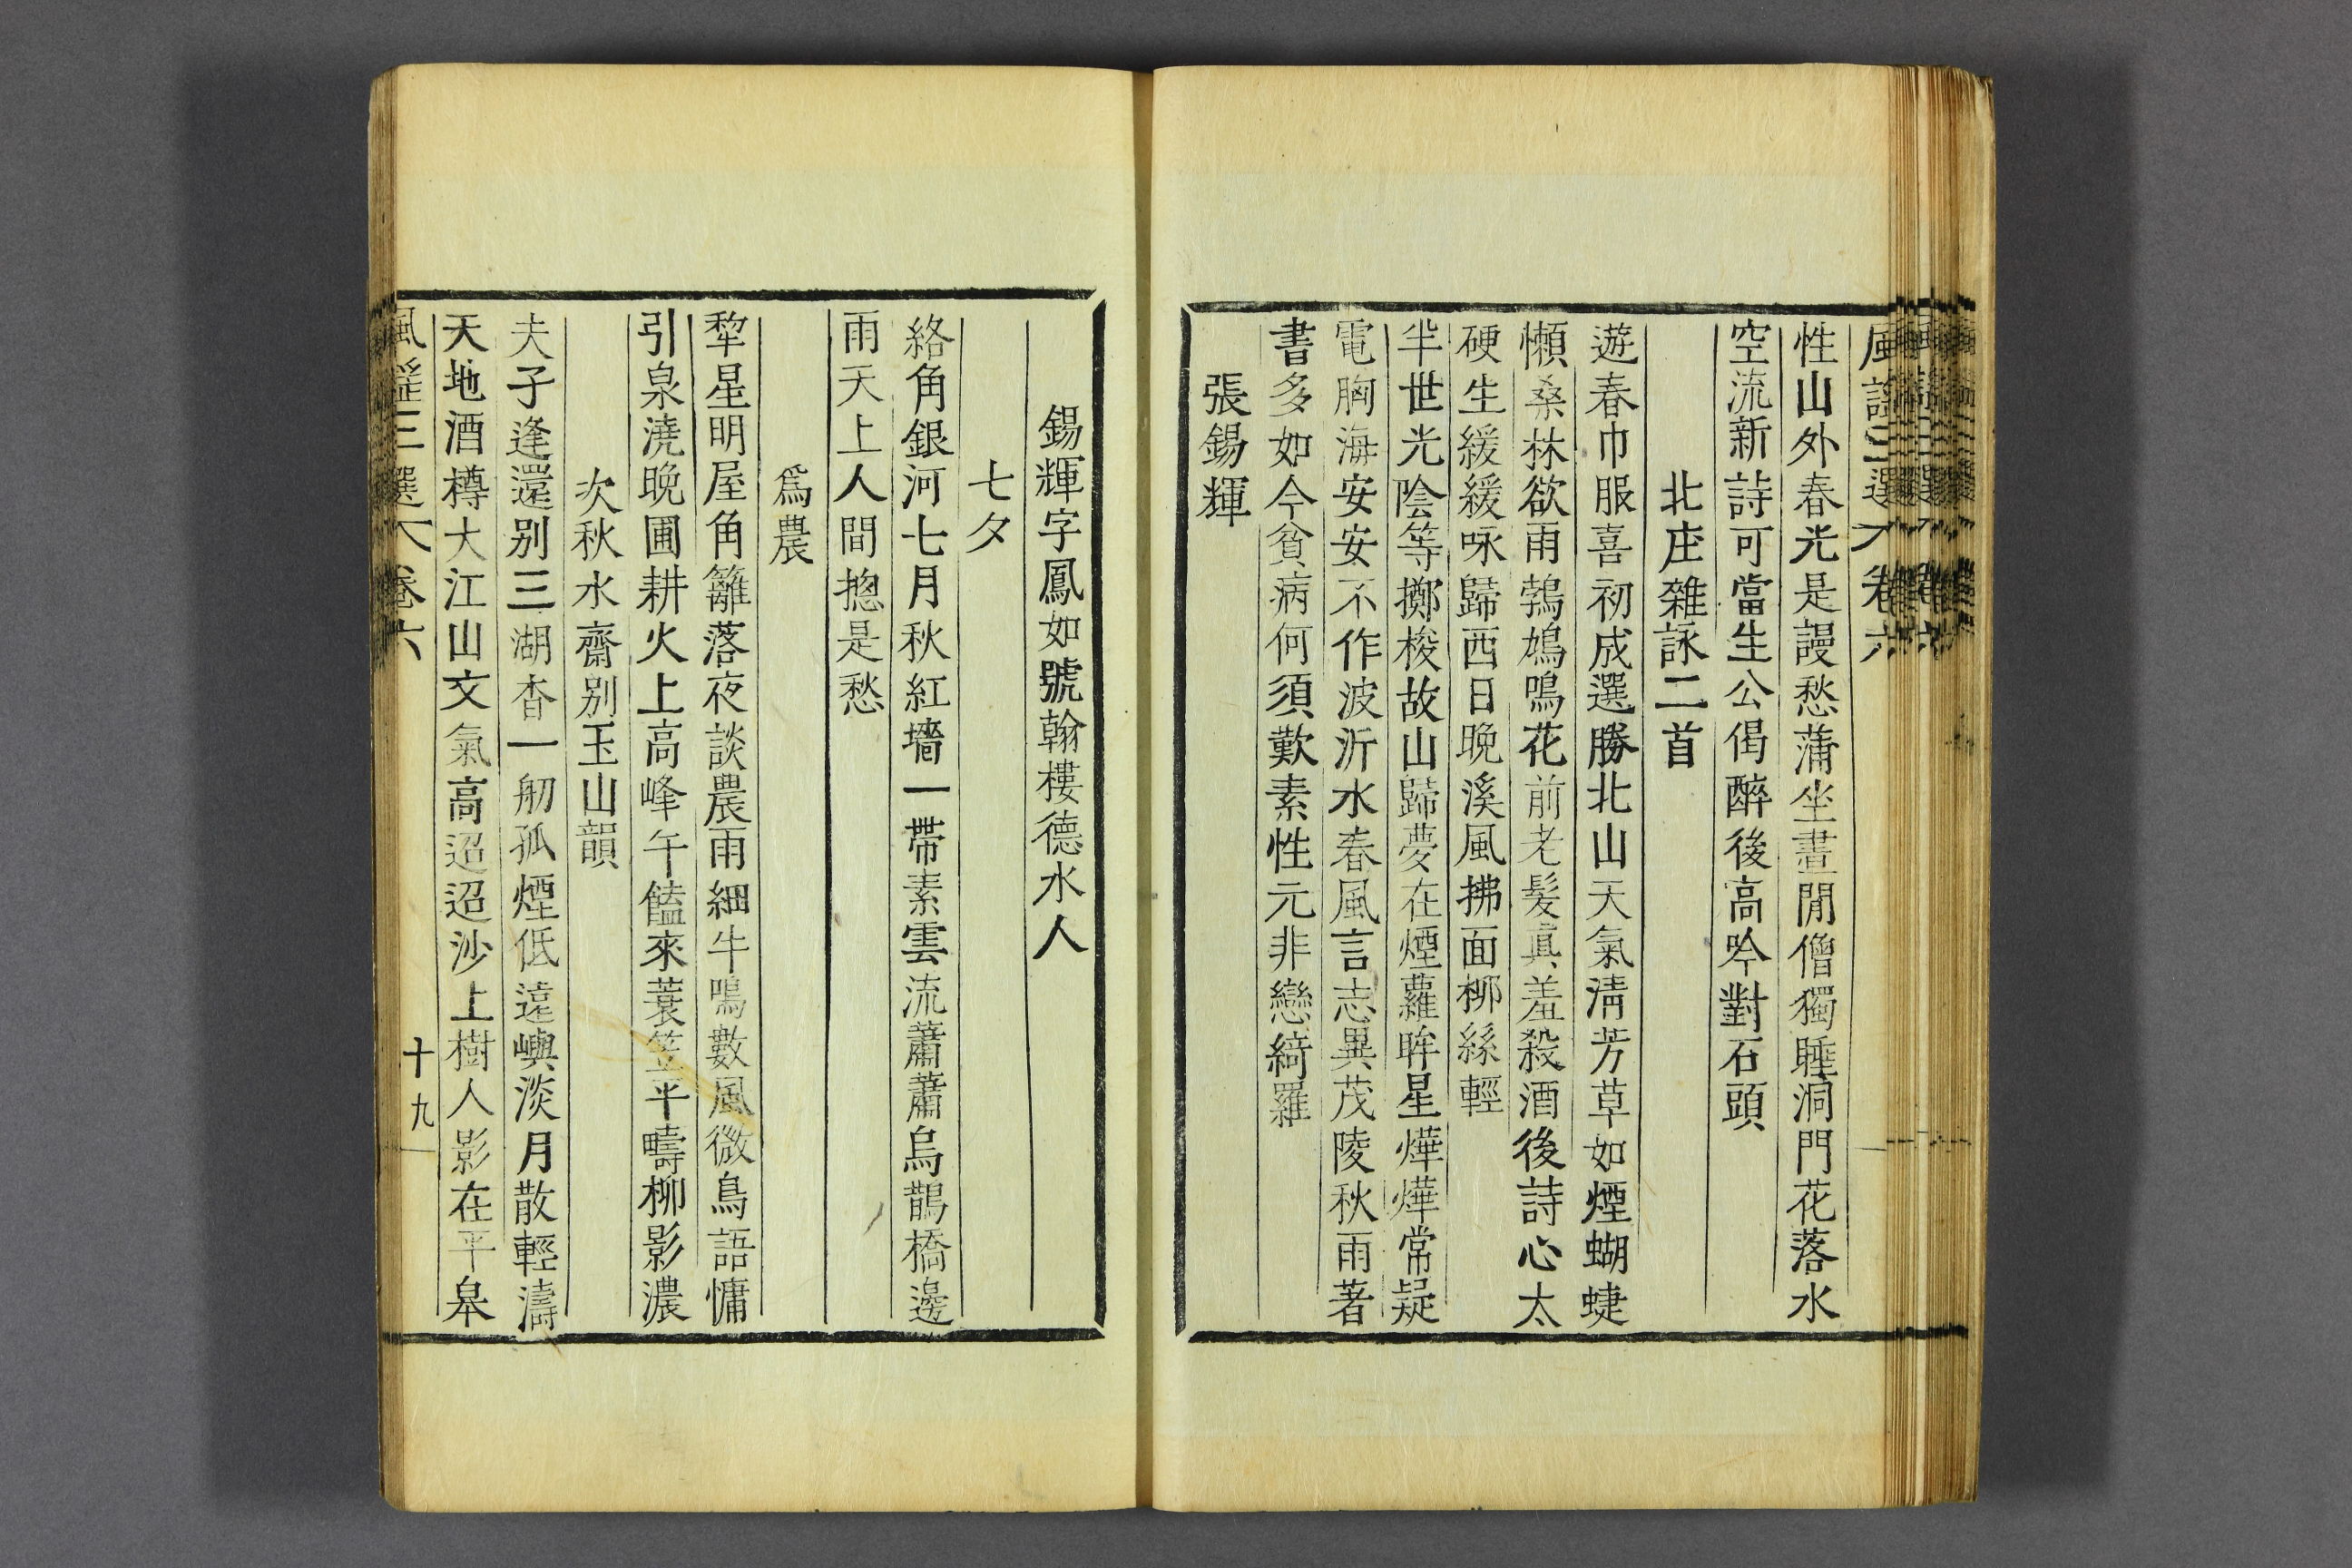 風謠三選 卷六
性山外春光是謾愁蒲坐晝閒僧獨睡洞門花落水
空流新詩可當生公偈醉後高吟對石頭
北庄雜詠二首
遊春巾服喜初成選勝北山天氣淸芳草如煙蝴蝶
懶桑林欲雨鵓鳩鳴花前老髮眞羞殺酒後詩心太
硬生緩緩咏歸西日晩溪風拂面柳絲輕
半世光陰等擲梭故山歸夢在煙蘿眸星燁燁常疑
電胸海安安不作波沂水春風言志異茂陵秋雨著
書多如今貧病何須歎素性元非戀綺羅
張錫輝
錫輝字鳳如號翰樓德水人
七夕
絡角銀河七月秋紅墻一帶素雲流蕭蕭烏鵲橋邊
雨天上人間摠是愁
爲農
犂星明屋角籬落夜談農雨細牛鳴數風微鳥語慵
引泉澆晩圃耕火上高峰午饁來蓑笠平疇柳影濃
次秋水齋別玉山韻
夫子逢還别三湖杳一舠孤煙低遠嶼淡月散輕濤
天地酒樽大江山文氣高迢迢沙上樹人影在平皋
風謠三選 卷六
十九